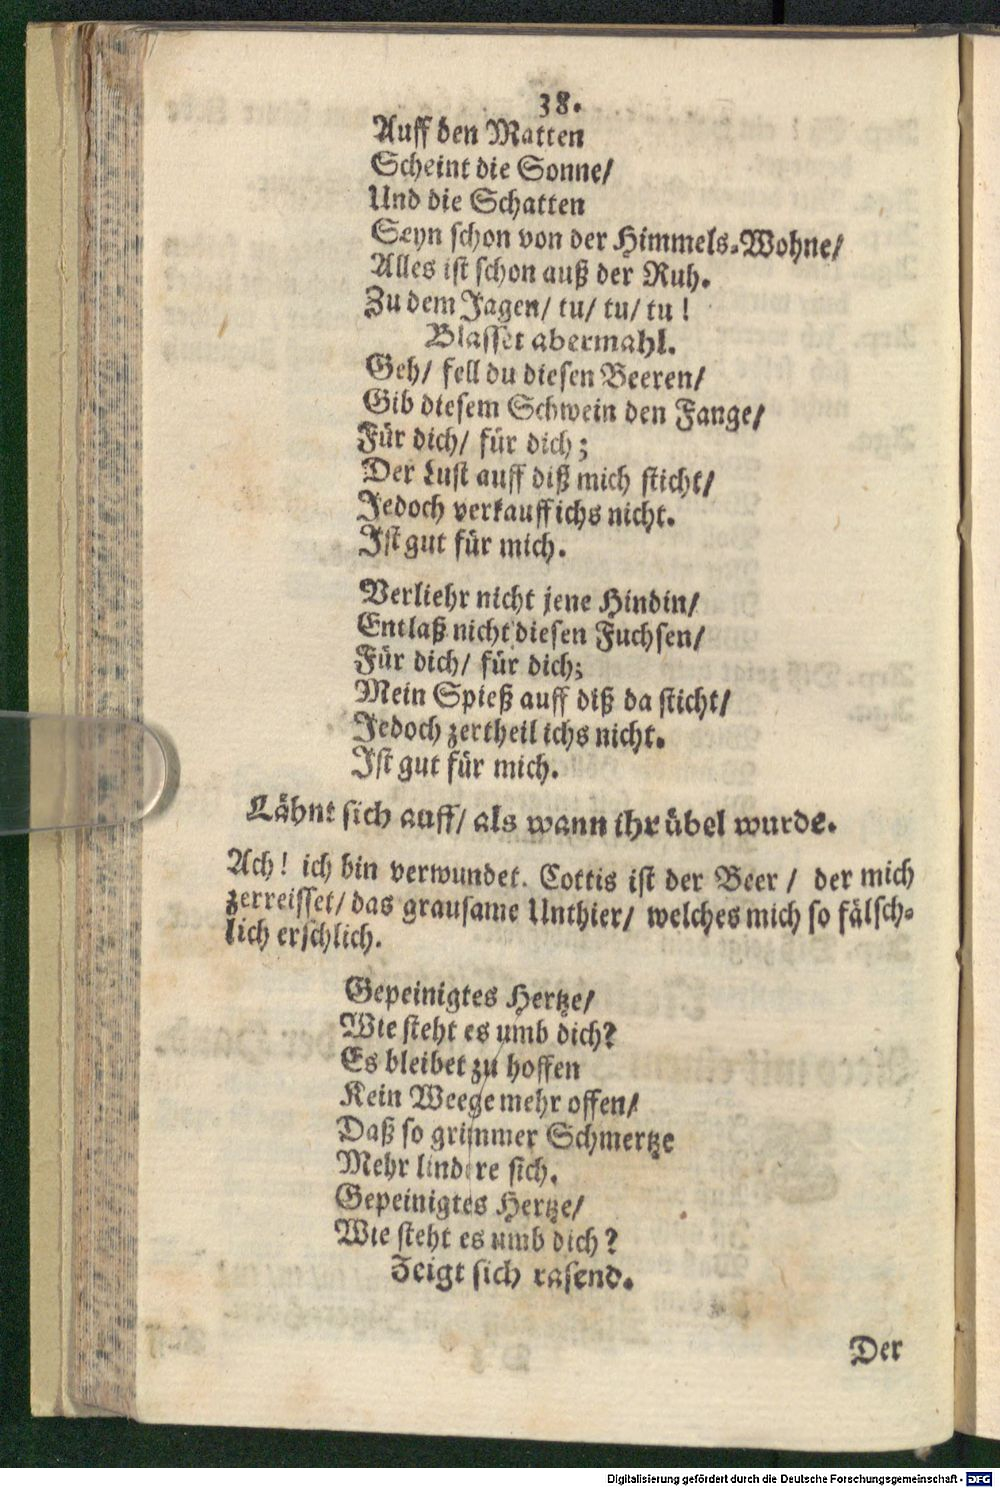 38.
Auff den Matten
Scheint die Sonne/
Und die Schatten
Seyn schon von der Himmels-Wohne/
Alles ist schon auß der Ruh.
Zu dem Jagen/ tu/ tu/ tu!
Blasset abermahl.
Geh/ fell du diesen Beeren/
Gib diesem Schwein den Fange/
Für dich/ für dich;
Der Lust auff diß mich sticht/
Jedoch verkauff ichs nicht.
Ist gut für mich.
Verliehr nicht jene Hindin/
Entlaß nicht diesen Fuchsen/
Für dich/ für dich;
Mein Spieß auff diß da sticht/
Jedoch zertheil ichs nicht.
Ist gut für mich.
Lähnt sich auff/ als wann ihr übel wurde.
Ach! ich bin verwundet. Cottis ist der Beer / der mich
zerreisset/ das grausame Unthier/ welches mich so fälsch-
lich erschlich.
Gepeinigtes Hertze/
Wie steht es umb dich?
Es bleibet zu hoffen
Kein Weege mehr offen/
Daß so grimmer Schmertze
Mehr lindere sich.
Gepeinigtes Hertze/
Wie steht es umb dich?
Zeigt sich rasend.
Der
Digitalisierung gefördert durch die Deutsche Forschungsgemeinschaft - DFG